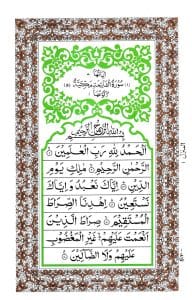 سُوْرَةُ الْفَاتِحَةِ مَكِّيَّةٌ
بِسْمِ اللهِ الرَّحْمٰنِ الرَّحِيْمِ
اَلْحَمْدُ لِلّٰهِ رَبِّ الْعٰلَمِيْنَ
الرَّحْمٰنِ الرَّحِيْمِ مٰلِكِ يَوْمِ
الدِّيْنِ اِيَّاكَ نَعْبُدُ وَاِيَّاكَ
نَسْتَعِيْنُ اِهْدِنَا الصِّرَاطَ
الْمُسْتَقِيْمَ صِرَاطَ الَّذِيْنَ
اَنْعَمْتَ عَلَيْهِمْ غَيْرِ الْمَغْضُوْبِ
عَلَيْهِمْ وَلَا الضَّآلِّيْنَ